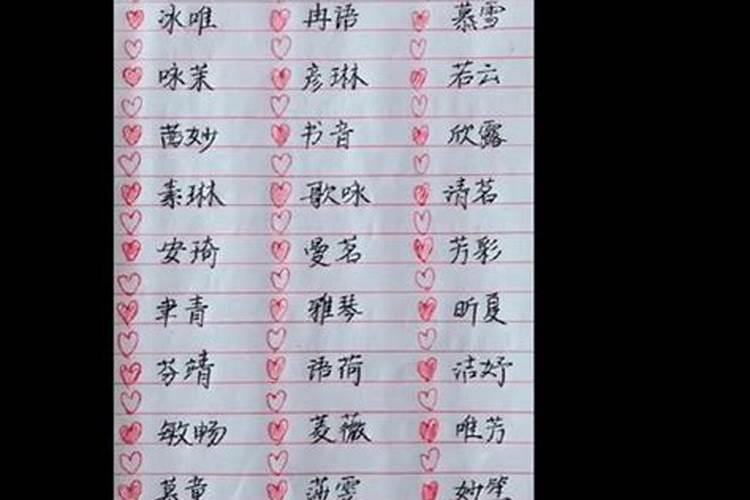 冰唯 冉语 慕雪
咏茉 彦琳 若云
茜妙 书音 欣露
素琳 歌咏 清茗
安琦 曼茗 芳彩
聿青 雅琴 昕夏
芬靖 语荷 洁妤
敏畅 菱薇 唯芳